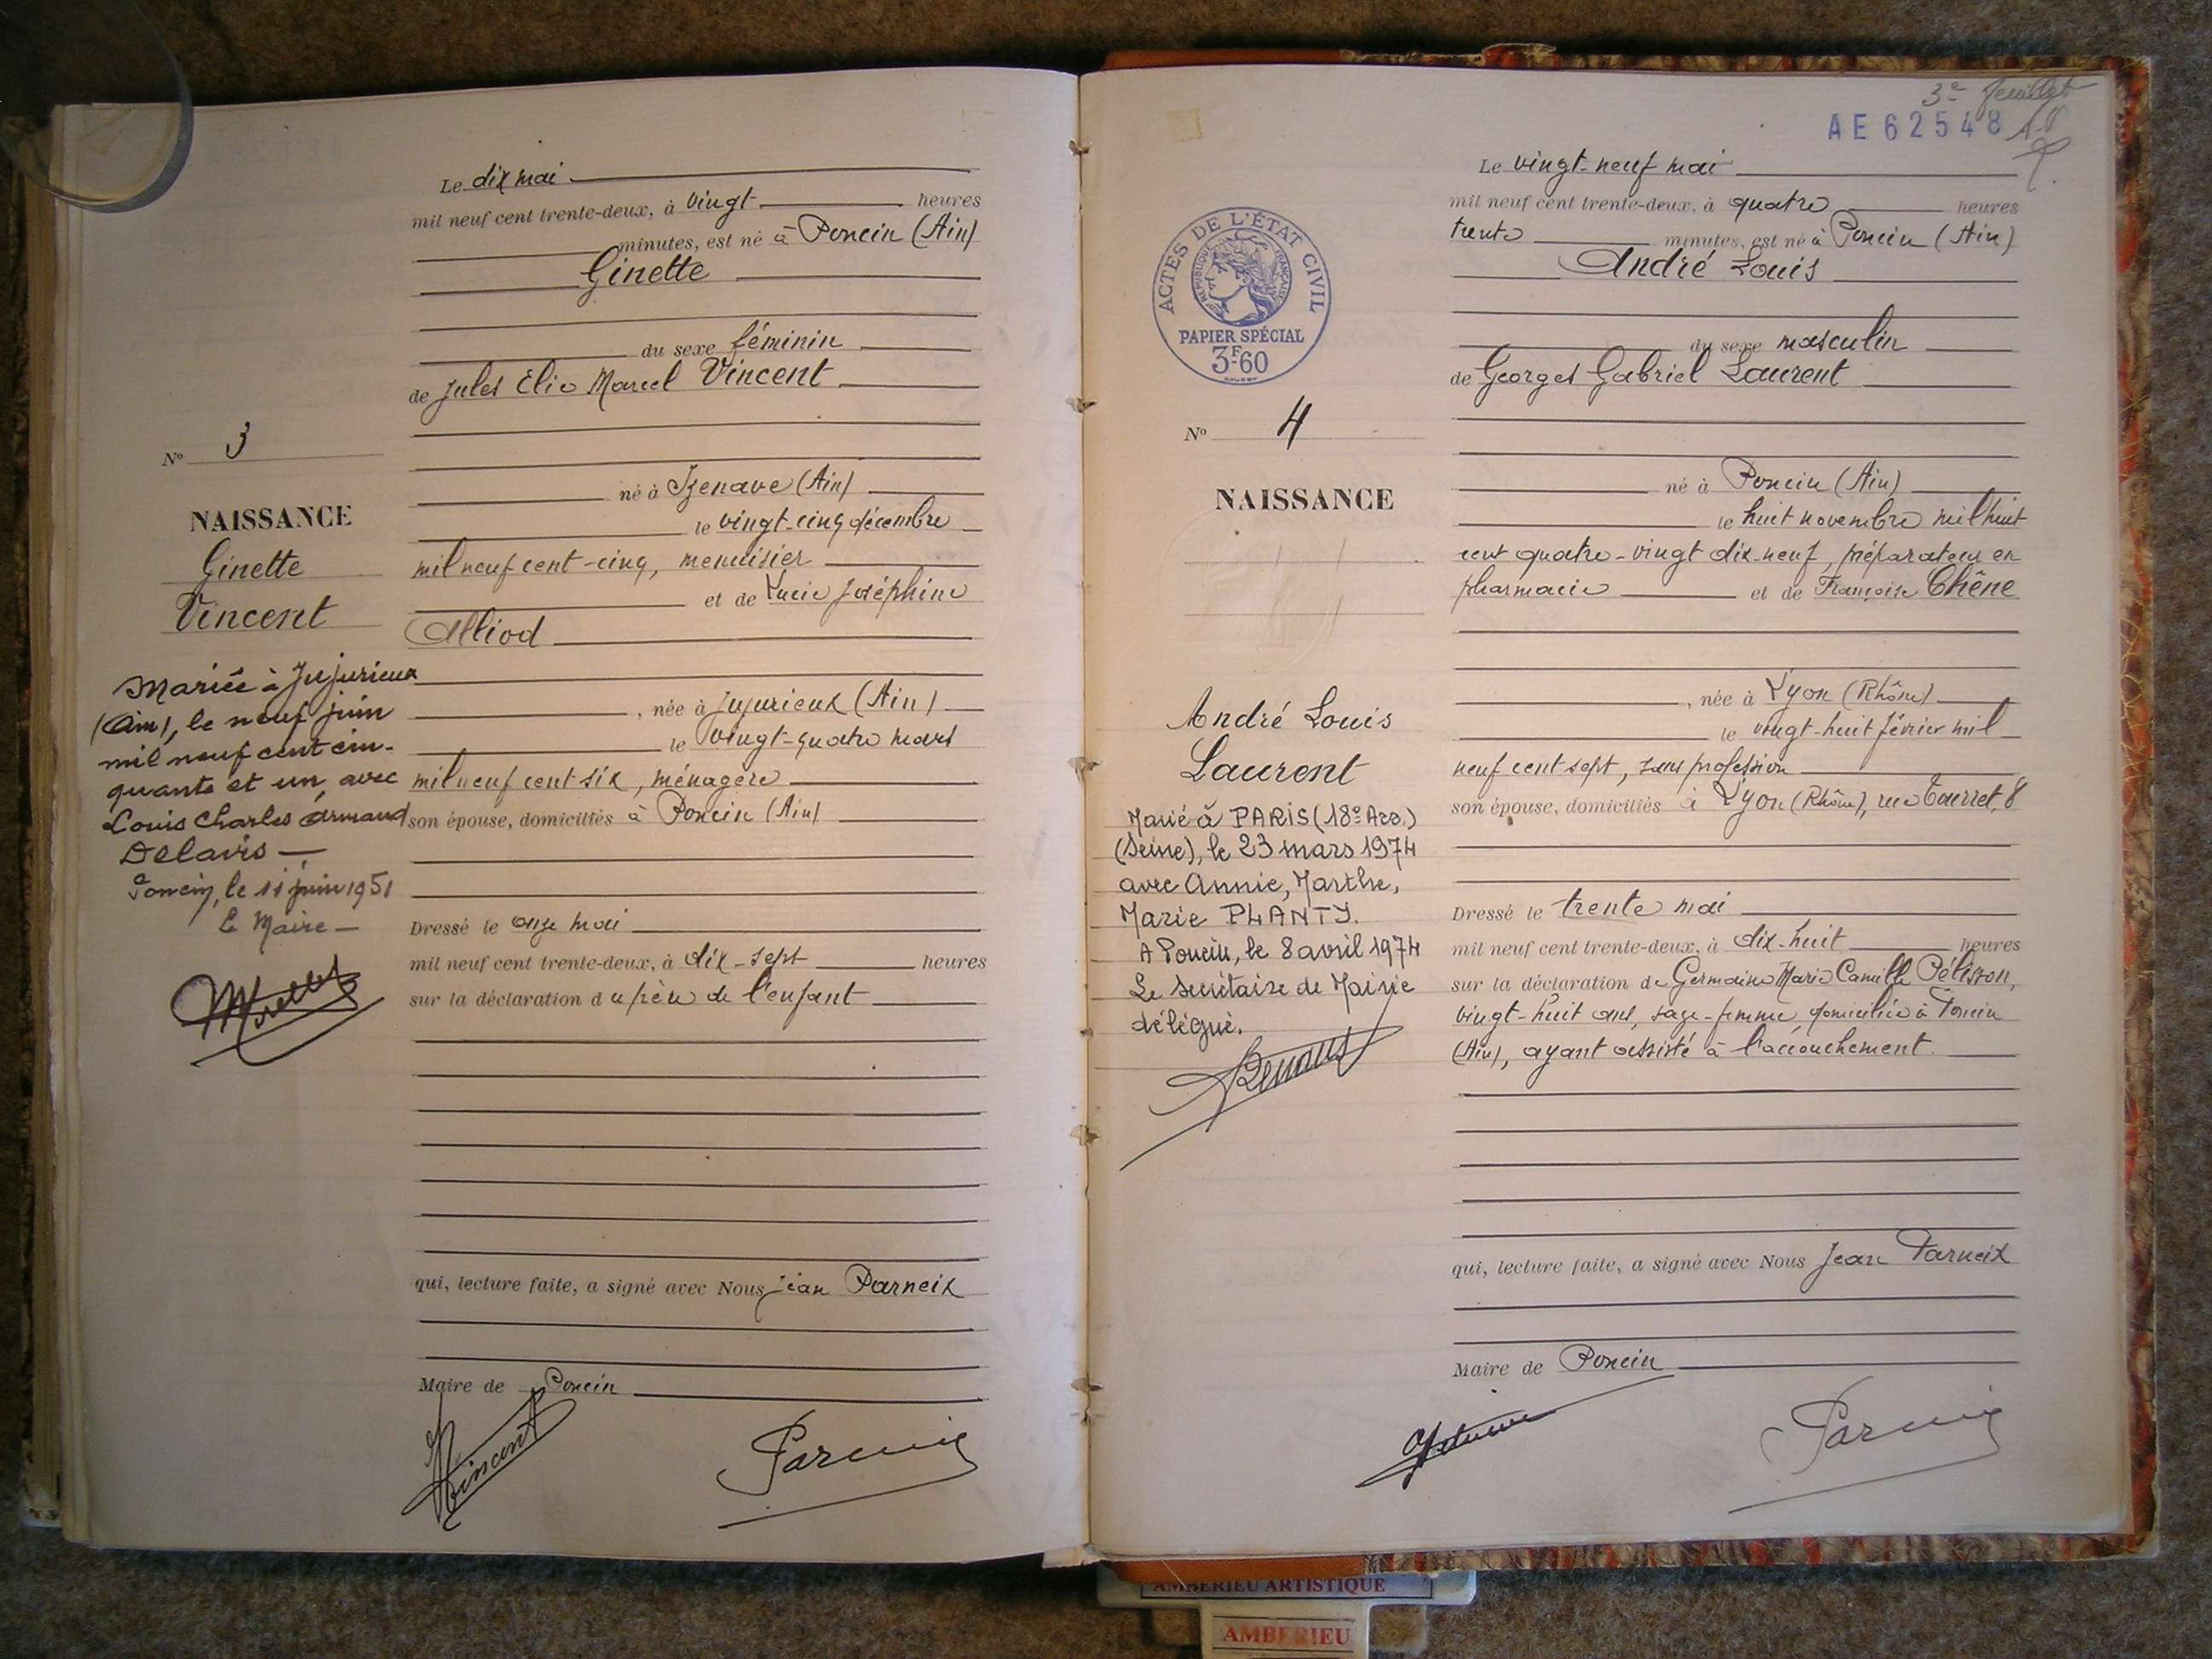 Le dix mai
mil neuf cent trente-deux, à vingt heures
minutes, est né à Poncin (Ain)
Ginette
du sexe féminin
de Jules Elie Marcel Vincent
Nº 3
né à Izenave (Ain)
NAISSANCE
le vingt-cinq décembre
Ginette
mil neuf cent-cinq, menuisier
et de Lucie Joséphine
Vincent
Alliod
Mariée à Jujurieux
(Ain), le neuf juin
mil neuf cent cin-
quante et un, avec
Louis Charles Armand
Delavis
Poncin, le 11 juin 1951
Le Maire
née à Jujurieux (Ain)
le vingt-quatre mars
mil neuf cent six, ménagère
son épouse, domiciliés à Poncin (Ain)
Dressé le onze mai
mil neuf cent trente-deux, à dix-sept heures
sur la déclaration du père de l'enfant
qui, lecture faite, a signé avec Nous Jean Parneix
Maire de Poncin
Vincent
Parneix
3e feuillet
AE62548
Le vingt-neuf mai
mil neuf cent trente-deux, à quatre heures
trente minutes, est né à Poncin (Ain)
André Louis
du sexe masculin
de Georges Gabriel Laurent
ACTES DE L'ÉTAT CIVIL
RÉPUBLIQUE FRANÇAISE
PAPIER SPÉCIAL
3F60
Nº 4
NAISSANCE
né à Poncin (Ain)
le huit novembre mil huit
cent quatre-vingt dix-neuf, préparateur en
pharmacie et de Françoise Chêne
née à Lyon (Rhône)
le vingt-huit février mil
neuf cent sept, sans profession
son épouse, domiciliés à Lyon (Rhône), rue Tourret 8
André Louis
Laurent
Marié à PARIS (18e Arr.)
(Seine), le 23 mars 1974
avec Annie, Marthe,
Marie PLANTY.
A Poncin, le 8 avril 1974
Le Secrétaire de Mairie
délégué.
Dressé le trente mai
mil neuf cent trente-deux, à dix-huit heures
sur la déclaration de Germaine Marie Camille Pélisson,
vingt-huit ans, sage-femme, domiciliée à Poncin
(Ain), ayant assisté à l'accouchement.
qui, lecture faite, a signé avec Nous Jean Parneix
Maire de Poncin
Parneix
AMBERIEU ARTISTIQUE
AMBERIEU